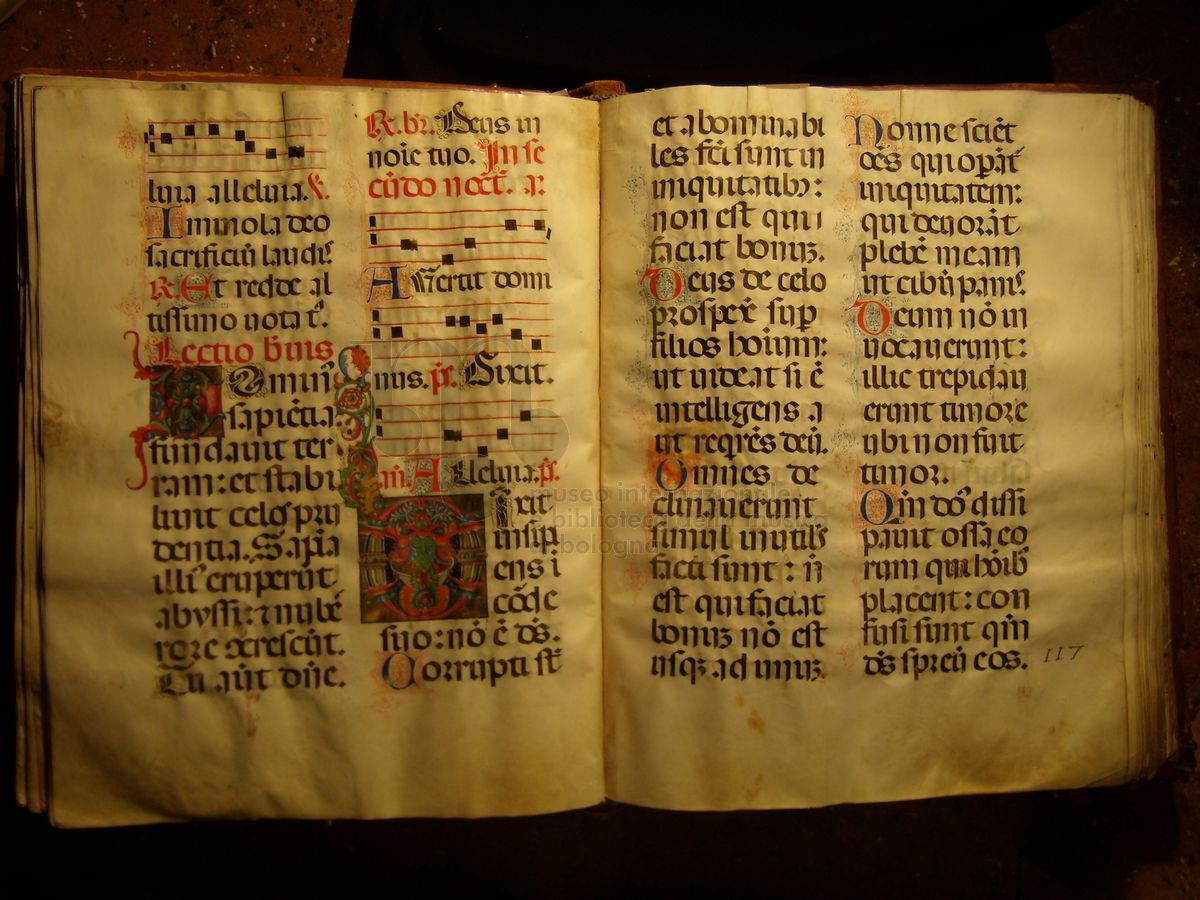 luia alleluia. ℣.
Immola deo
sacrificiū laudis.
℟. Et redde al
tissimo uota t̄.
Lectio b̄uis
Dominꝰ
sapiētia
fundauit ter
ram: et stabi
liuit celos pru
dentia. Sapīa
illiꝰ eruperūt
abyssi: ⁊ nubē
rore ɔcrescūt.
Tu aūt dn̄e.
℟. br̄. Deus in
noīe tuo. In se
cūdo noct̄. añ.
Auertit domi
nus. p̄s. Dixit.
añ. Alleluia. p̄s.
Ixit
insipi
ens i
corde
suo: nō ē dō̄s.
Corrupti st̄
et abominabi
les fc̄i sunt in
iniquitatibꝰ:
non est qui
faciat bonuꝫ.
Deus de celo
prospex̄ sup̄
filios hoīum:
ut uideat si ē
intelligens a
ut reqrēs deū.
Omnes de
clinauerunt
simul inutiles
facti sunt: n̄
est qui faciat
bonuꝫ nō est
usqꝫ ad unuꝫ.
Nonne sciēt
oēs qui opāt̄
iniquitatem:
qui deuorāt
plebē meam
ut cibū panis.
Deum nō in
uocauerunt:
illic trepidau
erunt timore
ubi non fuit
timor.
Qm̄ dō̄s dissi
pauit ossa eo
rum qui hoīb
placent: con
fusi sunt qm̄
dō̄s spreu eos.
117
museo internazionale
biblioteca della musica
bologna